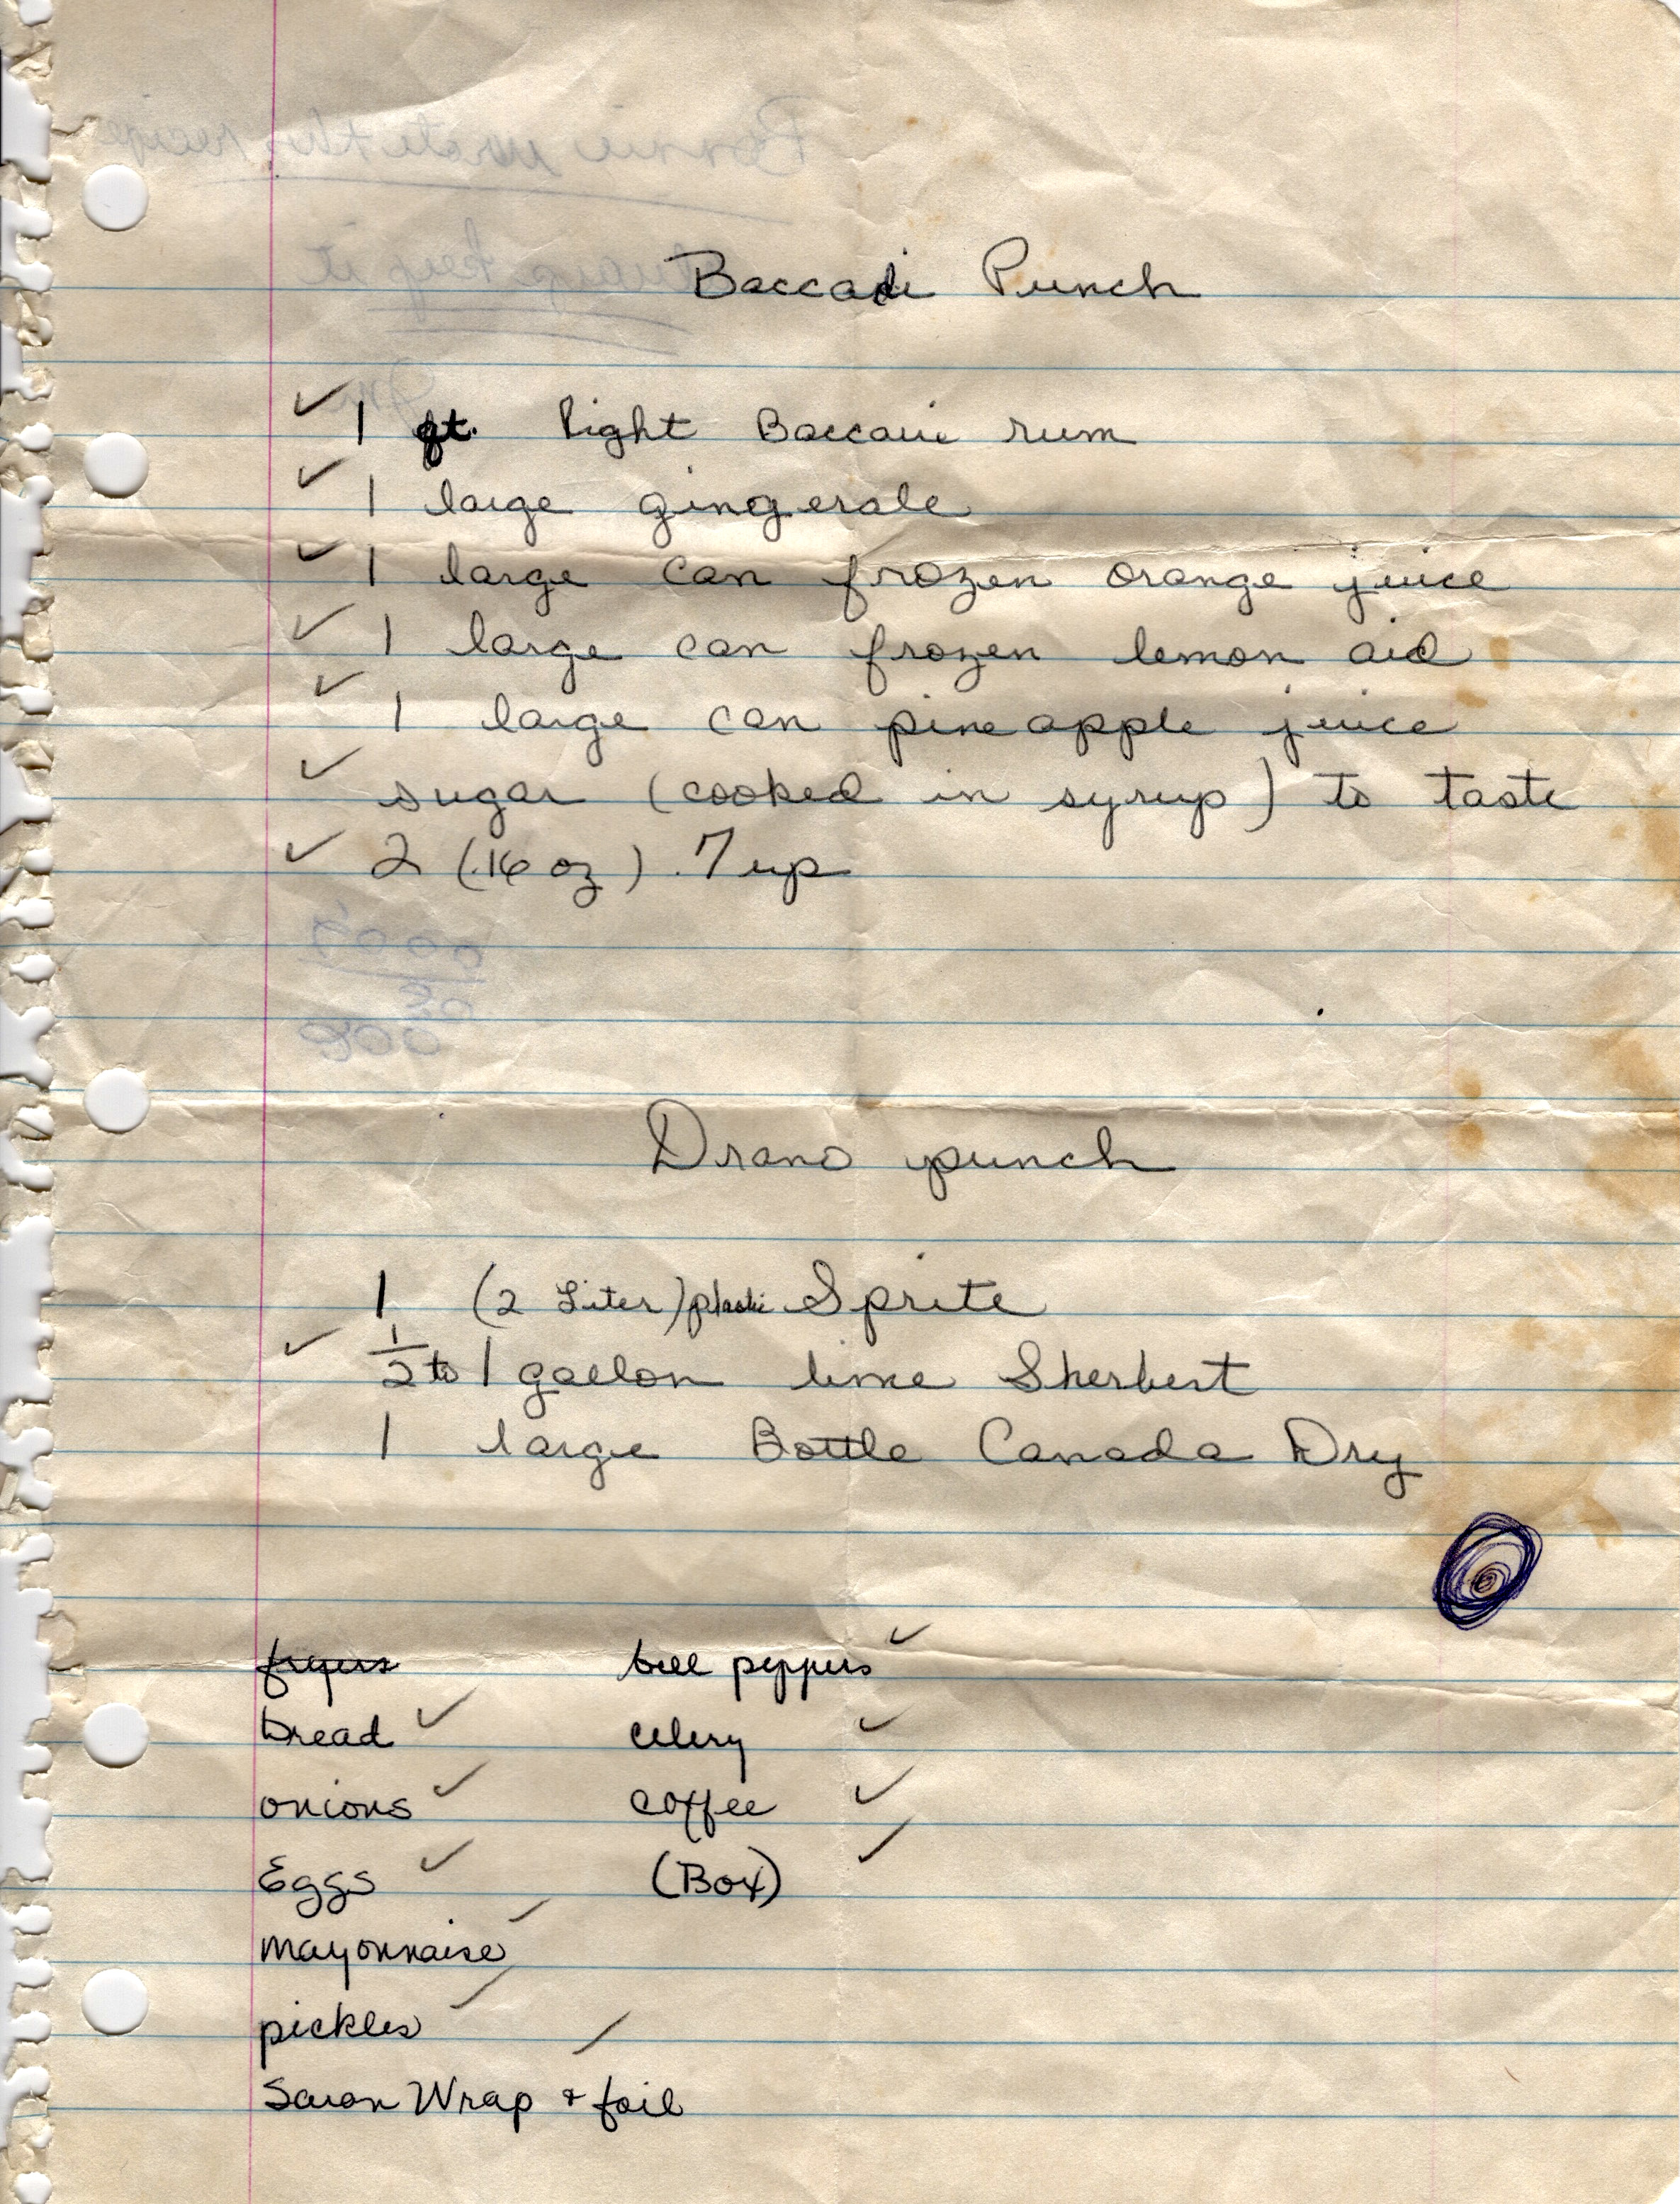 Baccadi Punch
✓ 1 qt. light Baccardi rum
✓ 1 large gingerale
✓ 1 large can frozen orange juice
✓ 1 large can frozen lemon aid
✓ 1 large can pineapple juice
✓ sugar (cooked in syrup) to taste
✓ 2 (16 oz) 7 up
Drano punch
1 (2 Liter) plastic Sprite
✓ 1/2 to 1 gallon lime Sherbert
1 large Bottle Canada Dry
fryers
bread ✓
onions ✓
Eggs ✓
mayonnaise ✓
pickles ✓
Saran Wrap + foil ✓
bell peppers ✓
celery ✓
coffee ✓
(Box) ✓